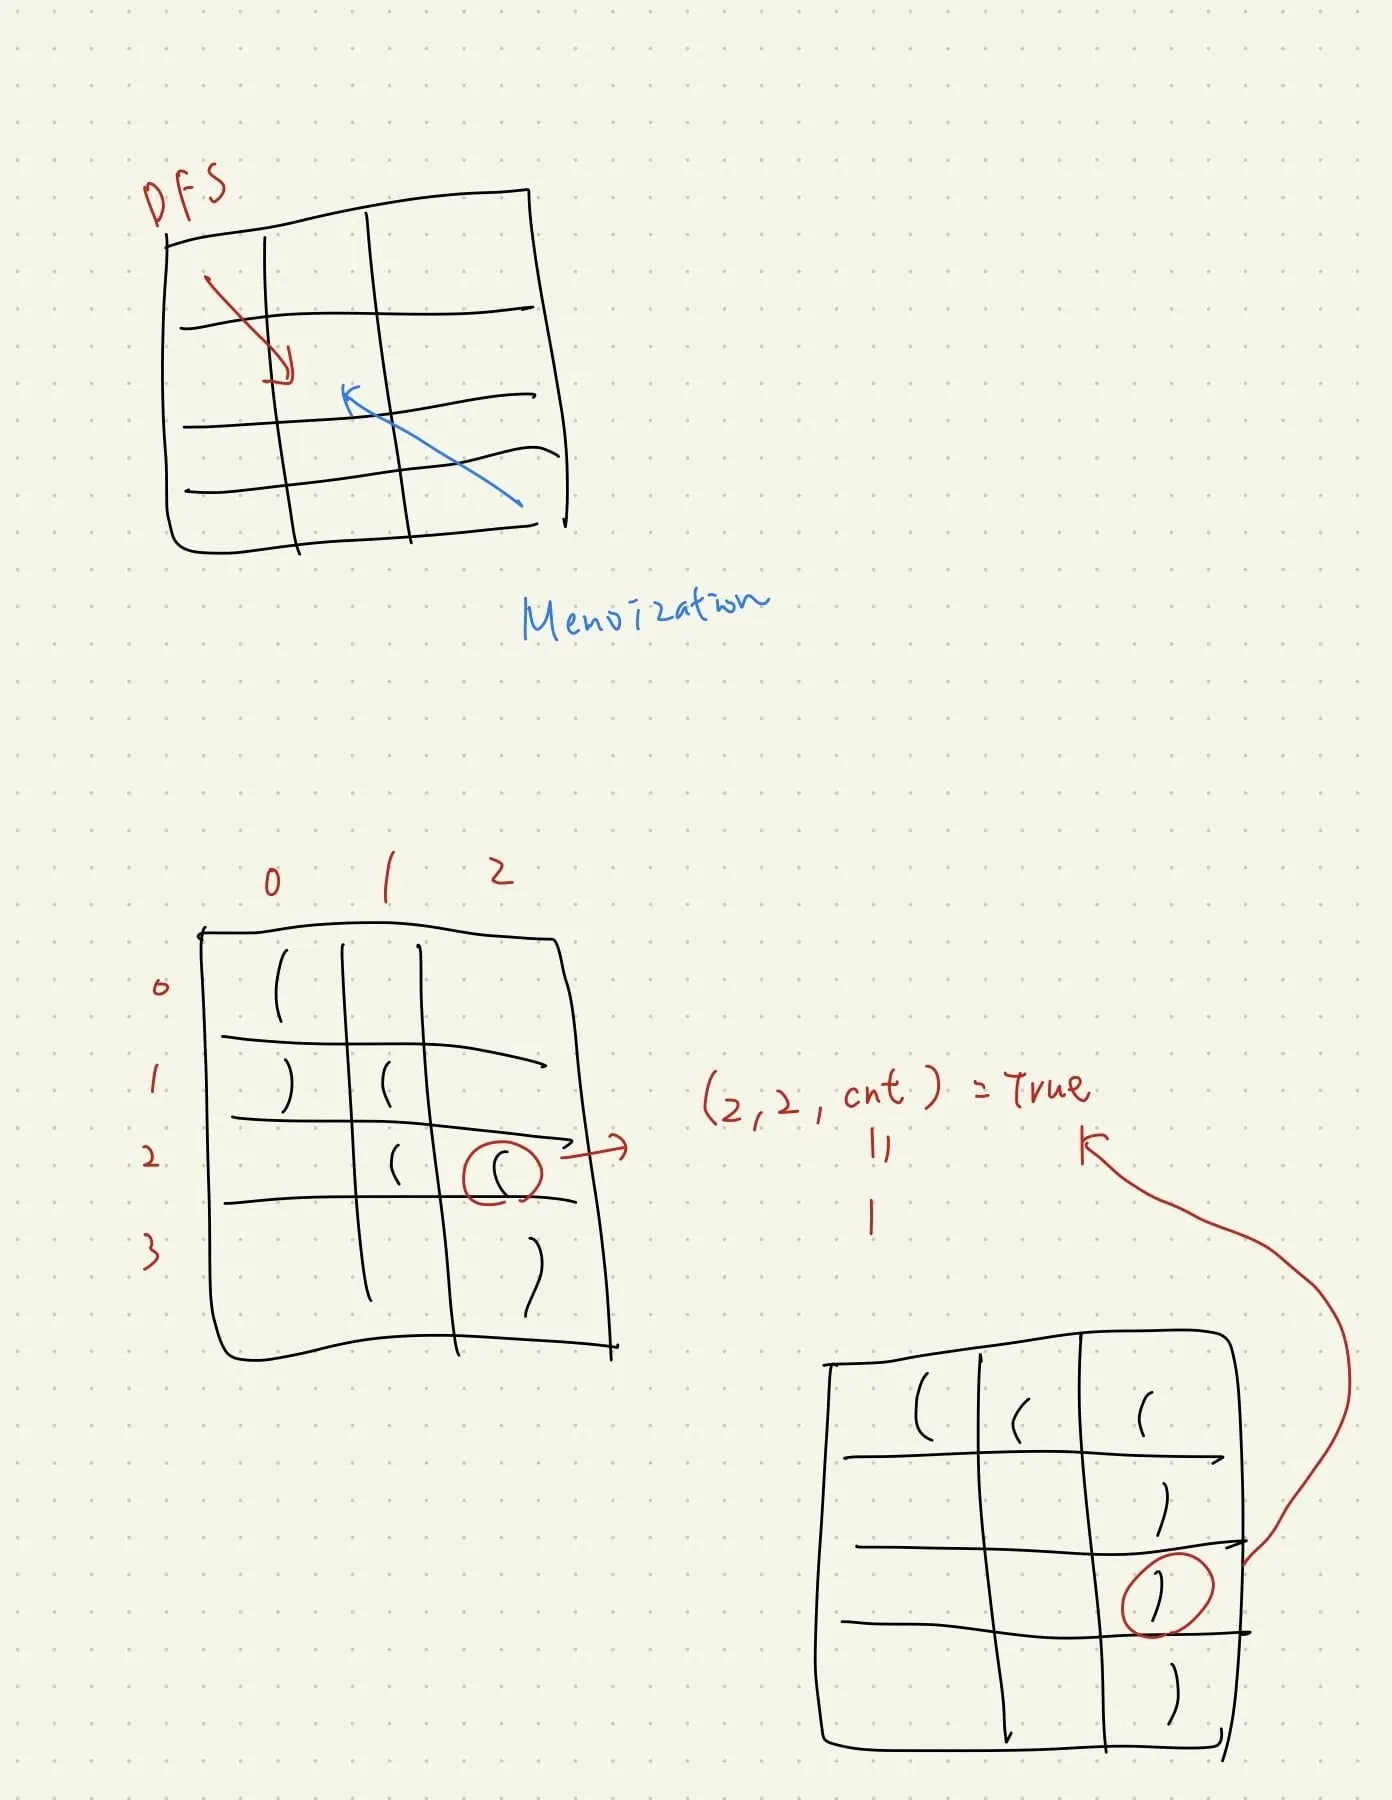 DFS
Menoization
0 1 2
0 (
1 ) (
2 ( (
3 )
(2, 2, cnt) = True
||
1
( ( (
)
)
)